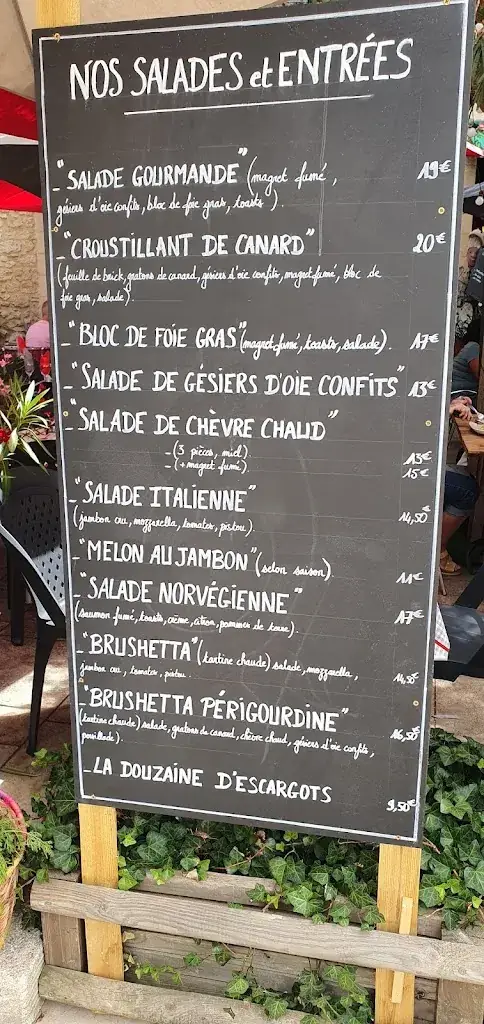 NOS SALADES et ENTRÉES
_ "SALADE GOURMANDE" (magret fumé, 19€
gésiers d'oie confits, bloc de foie gras, toasts).
_ "CROUSTILLANT DE CANARD" 20€
(feuille de brick, gratons de canard, gésiers d'oie confits, magret fumé, bloc de
foie gras, salade).
_ "BLOC DE FOIE GRAS" (magret fumé, toasts, salade). 17€
_ "SALADE DE GÉSIERS D'OIE CONFITS" 13€
_ "SALADE DE CHÈVRE CHAUD"
- (3 pièces, miel) 13€
- (+ magret fumé) 15€
_ "SALADE ITALIENNE"
(jambon cru, mozzarella, tomates, pistou). 14,50€
_ "MELON AU JAMBON" (selon saison). 11€
_ "SALADE NORVÉGIENNE"
(saumon fumé, toasts, crème, citron, pommes de terre). 17€
_ "BRUSHETTA" (tartine chaude) salade, mozzarella,
jambon cru, tomates, pistou. 14,50€
_ "BRUSHETTA PÉRIGOURDINE"
(tartine chaude) salade, gratons de canard, chèvre chaud, gésiers d'oie confits, 16,50€
persillade).
_ LA DOUZAINE D'ESCARGOTS 9,50€